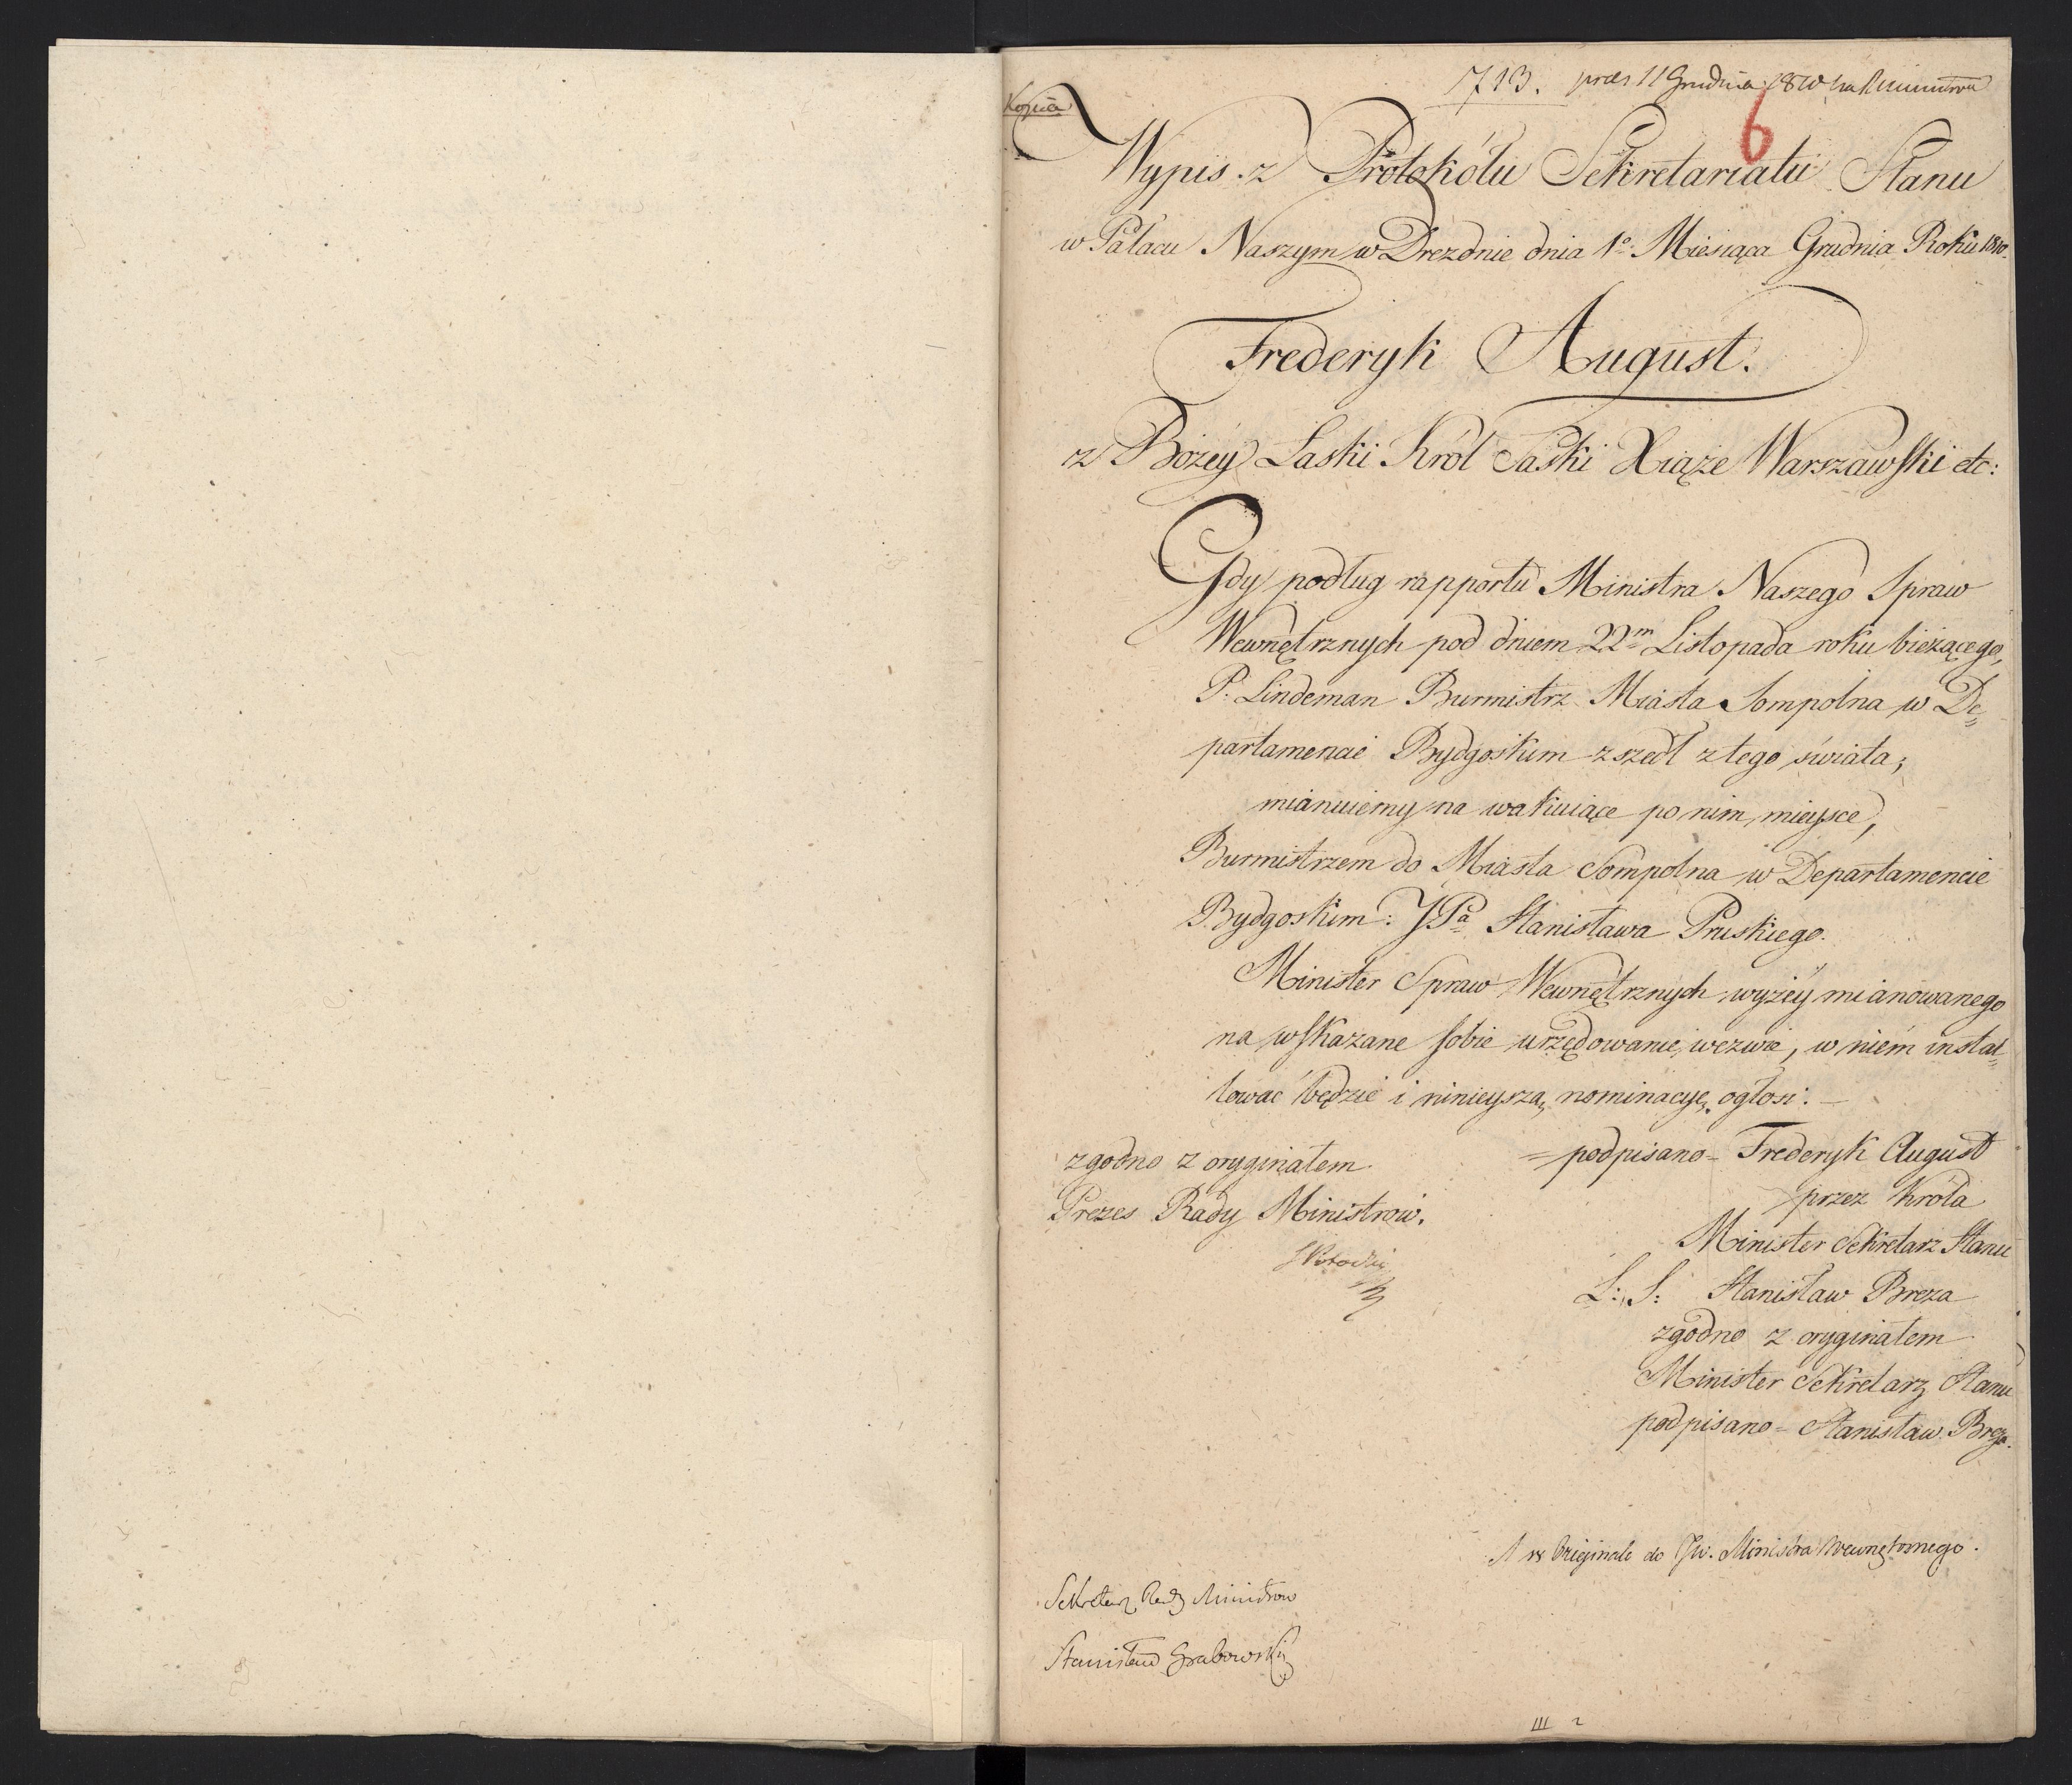 Kopia
713. præs 11 Grudnia 1810 na Ministrów
6
Wypis z Protokółu Sekretariatu Stanu
w Pałacu Naszym w Dreznie dnia 1o Miesiąca Grudnia Roku 1810.
Frederyk August.
z Bożey Łaski Król Saski Xiąże Warszawski etc:
Gdy podług rapportu Ministra Naszego Spraw
Wewnętrznych pod dniem 22m Listopada roku bieżącego,
P. Lindeman Burmistrz Miasta Sompolna w De=
partamencie Bydgoskim zszedł z tego świata;
mianuiemy na wakuiące po nim mieysce,
Burmistrzem do Miasta Sompolna w Departamencie
Bydgoskim: JPa Stanisława Pruskiego.
Minister Spraw Wewnętrznych wyżéy mianowanego
na wskazane sobie urzędowanie wezwie, w niém instal=
lować będzie i ninieyszą nominacyę ogłosi. —
zgodno z oryginałem
Prezes Rady Ministrów.
=podpisano= Frederyk August
przez Króla
Minister Sekretarz Stanu
L: S: Stanisław Breza
zgodno z oryginałem
Minister Sekretarz Stanu
podpisano= Stanisław Breza.
w Oryginale do JW. Ministra Wewnętrznego.
Sekretarz Rady Ministrów
Stanisław Grabowski
III 2